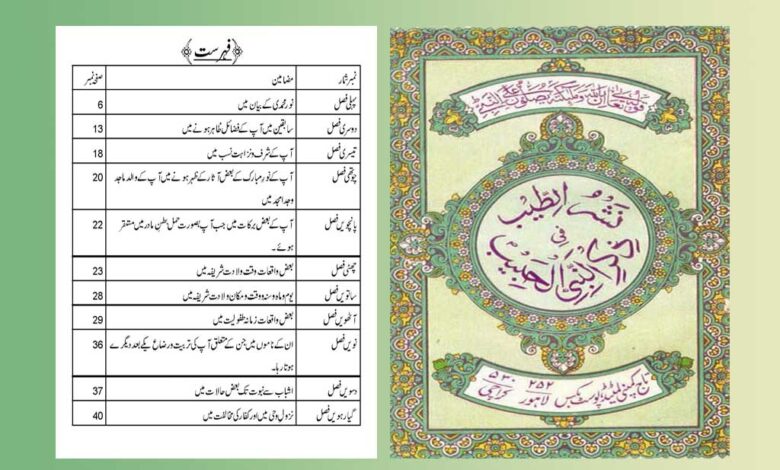 فہرست
نمبر شمار مضامین صفحہ نمبر
پہلی فصل نور محمدی کے بیان میں 6
دوسری فصل سابقین میں آپ کے فضائل ظاہر ہونے میں 13
تیسری فصل آپ کے شرف و نزاہت نسب میں 18
چوتھی فصل آپ کے نور مبارک کے بعض آثار کے ظہر ہونے میں آپ کے والد ماجد 20
وجد امجد میں
پانچویں فصل آپ کے بعض برکات میں جب آپ بصورت حمل بطن مادر میں مستقر 22
ہوئے۔
چھٹی فصل بعض واقعات وقت ولادت شریفہ میں 23
ساتویں فصل یوم و ماہ و سنہ و وقت و مکان ولادت شریفہ میں 28
آٹھویں فصل بعض واقعات زمانہ طفولیت میں 29
نویں فصل ان کے ناموں میں جن کے متعلق آپ کی تربیت و رضاع یکے بعد دیگرے 36
ہوتا رہا۔
دسویں فصل شباب سے نبوت تک بعض حالات میں 37
گیارہویں فصل نزول وحی میں اور کفار کی مخالفت میں 40
نشر الطیب
فی
ذکر النبی الحبیب
تاج کمپنی لمیٹڈ پوسٹ بکس ۲۵۲ لاہور ۵۳۰ کراچی